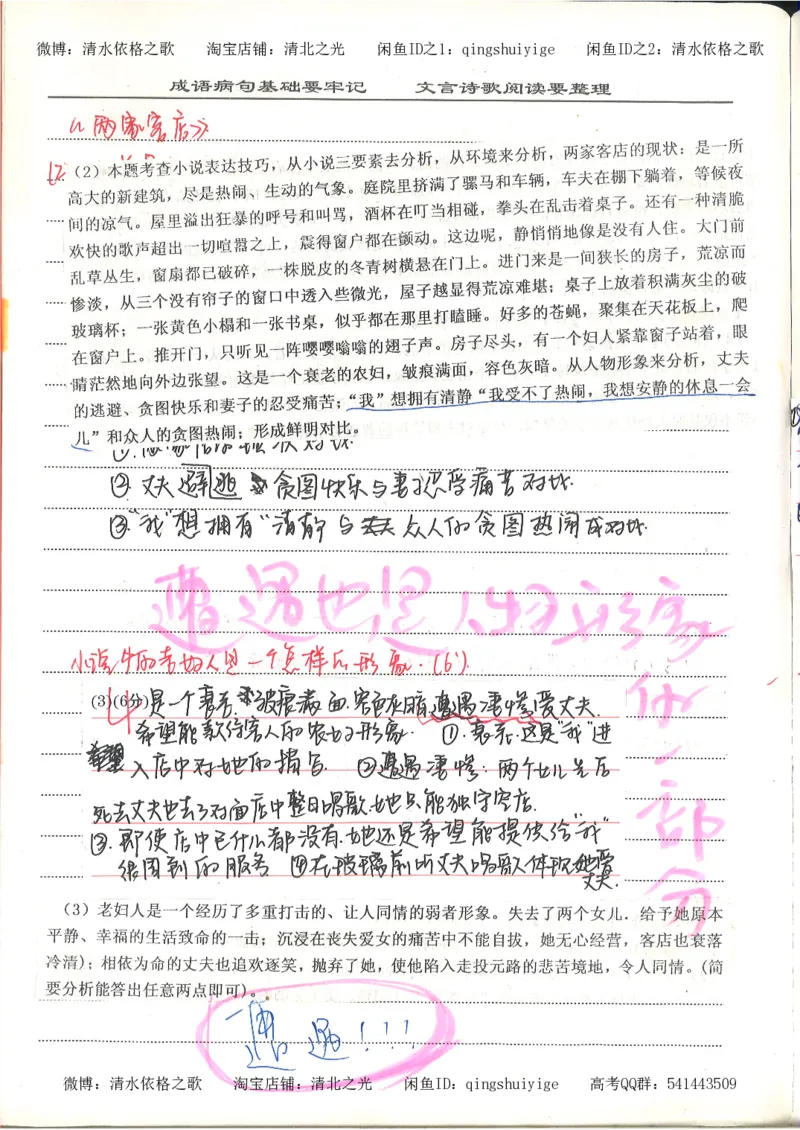 微博：清水依格之歌 淘宝店铺：清北之光 闲鱼ID之1：qingshuiyige 闲鱼ID之2：清水依格之歌
成语病句基础要牢记 文言诗歌阅读要整理
《两家客店》
12.（2）本题考查小说表达技巧，从小说三要素去分析，从环境来分析，两家客店的现状：是一所
高大的新建筑，尽是热闹、生动的气象。庭院里挤满了骡马和车辆，车夫在棚下躺着，等候夜
间的凉气。屋里溢出狂暴的呼号和叫骂，酒杯在叮当相碰，拳头在乱击着桌子。还有一种清脆
欢快的歌声超出一切喧嚣之上，震得窗户都在颤动。这边呢，静悄悄地像是没有人住。大门前
乱草丛生，窗扇都已破碎，一株脱皮的冬青树横悬在门上。进门来是一间狭长的房子，荒凉而
惨淡，从三个没有帘子的窗口中透入些微光，屋子越显得荒凉难堪；桌子上放着积满灰尘的破
玻璃杯；一张黄色小榻和一张书桌，似乎都在那里打瞌睡。好多的苍蝇，聚集在天花板上，爬
在窗户上。推开门，只听见一阵嘤嘤嗡嗡的翅子声。房子尽头，有一个妇人紧靠窗子站着，眼
睛茫然地向外边张望。这是一个衰老的农妇，皱痕满面，容色灰暗。从人物形象来分析，丈夫
的逃避、贪图快乐和妻子的忍受痛苦；“我”想拥有清静“我受不了热闹，我想安静的休息一会
儿”和众人的贪图热闹；形成鲜明对比。
②丈夫避逃 贪图快乐与妻子忍受痛苦对比.
③“我”想拥有“清静”与 众人的贪图热闹成对比.
遭遇也是人物形象
小说中的老妇人是一个怎样的形象.(6')
(3)(6分)是一个衰老 皱痕满面.容色灰暗.遭遇凄惨爱丈夫.
4
希望能款待客人的农妇形象. ①.衰老.这是“我”进
希望 入店中对她的描写. ②遭遇凄惨：两个女儿先后
死去丈夫也去了对面店中整日唱歌.她只能独守客店.
③.即使店中已什么都没有.她还是希望能提供给“我”
很周到的服务 ④在玻璃前听丈夫唱歌体现她爱
丈夫.
的一部分
（3）老妇人是一个经历了多重打击的、让人同情的弱者形象。失去了两个女儿．给予她原本
平静、幸福的生活致命的一击；沉浸在丧失爱女的痛苦中不能自拔，她无心经营，客店也衰落
冷清)；相依为命的丈夫也追欢逐笑，抛弃了她，使他陷入走投元路的悲苦境地，令人同情。(简
要分析能答出任意两点即可)。
遭遇！！！
微博：清水依格之歌 淘宝店铺：清北之光 闲鱼ID：qingshuiyige 高考QQ群：541443509